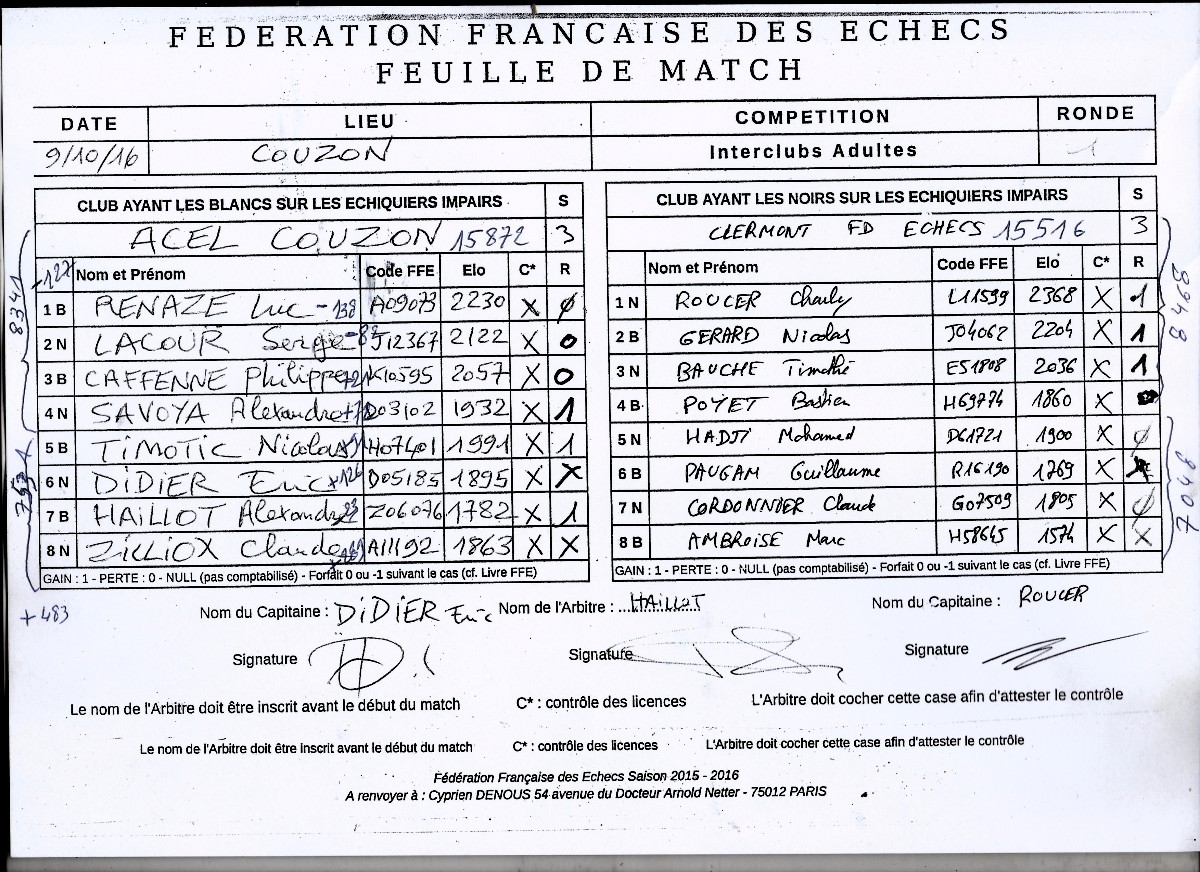 FEDERATION FRANCAISE DES ECHECS
FEUILLE DE MATCH
DATE LIEU COMPETITION RONDE
9/10/16 COUZON Interclubs Adultes 1
CLUB AYANT LES BLANCS SUR LES ECHIQUIERS IMPAIRS S
ACEL COUZON 15872 3
Nom et Prénom Code FFE Elo C* R
1 B RENAZE Luc -138 A09073 2230 X 0
2 N LACOUR Serge J12367 2122 X 0
3 B CAFFENNE Philippe K10595 2057 X 0
4 N SAVOYA Alexandre D03102 1932 X 1
5 B TIMOTIC Nicolas H07401 1991 X 1
6 N DIDIER Eric +126 D05185 1895 X X
7 B HAILLOT Alexandre Z06076 1782 X 1
8 N ZILLIOX Claude A11192 1863 X X
GAIN : 1 - PERTE : 0 - NULL (pas comptabilisé) - Forfait 0 ou -1 suivant le cas (cf. Livre FFE)
8341
7531
+483
CLUB AYANT LES NOIRS SUR LES ECHIQUIERS IMPAIRS S
CLERMONT FD ECHECS 15516 3
Nom et Prénom Code FFE Elo C* R
1 N ROUCER Charly L11599 2368 X 1
2 B GERARD Nicolas J04062 2204 X 1
3 N BAUCHE Timothé E51808 2036 X 1
4 B POYET Bastien H69774 1860 X
5 N HADJI Mohamed D61721 1900 X 0
6 B PAUGAM Guillaume R16190 1769 X X
7 N CORDONNIER Claude G07509 1805 X 0
8 B AMBROISE Marc H58645 1574 X X
GAIN : 1 - PERTE : 0 - NULL (pas comptabilisé) - Forfait 0 ou -1 suivant le cas (cf. Livre FFE)
8468
Nom du Capitaine : DIDIER Eric Nom de l'Arbitre : HAILLOT Nom du Capitaine : ROUCER
Signature Signature Signature
Le nom de l'Arbitre doit être inscrit avant le début du match C* : contrôle des licences L'Arbitre doit cocher cette case afin d'attester le contrôle
Le nom de l'Arbitre doit être inscrit avant le début du match C* : contrôle des licences L'Arbitre doit cocher cette case afin d'attester le contrôle
Fédération Française des Echecs Saison 2015 - 2016
A renvoyer à : Cyprien DENOUS 54 avenue du Docteur Arnold Netter - 75012 PARIS